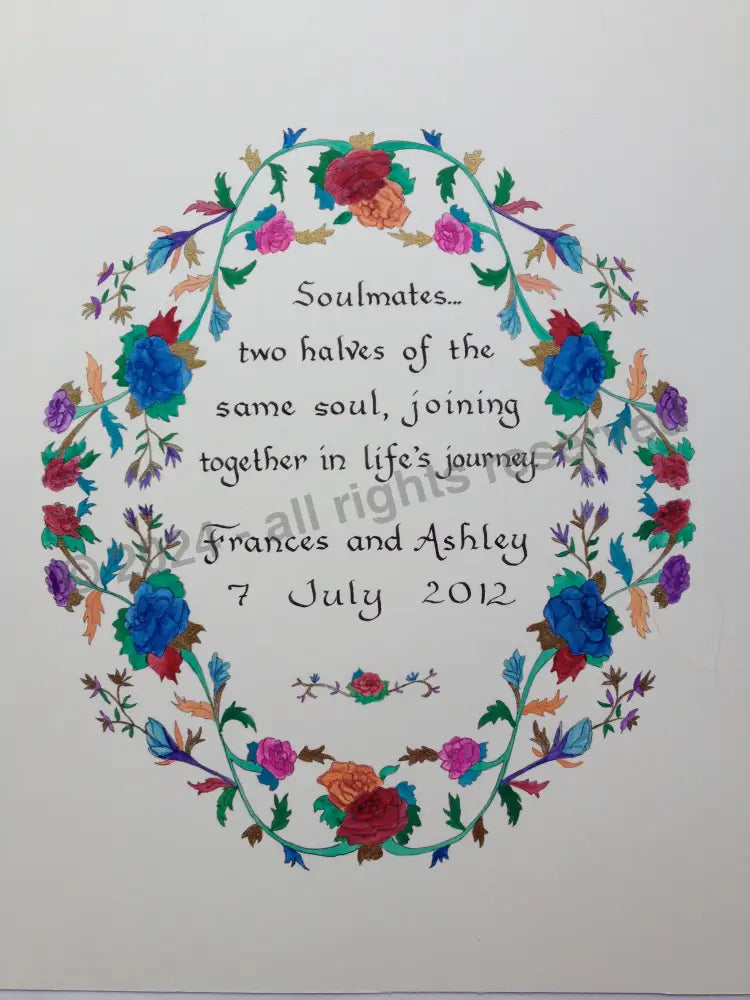 Soulmates...
two halves of the
same soul, joining
together in life's journey
Frances and Ashley
7 July 2012
© 2024 - all rights reserved